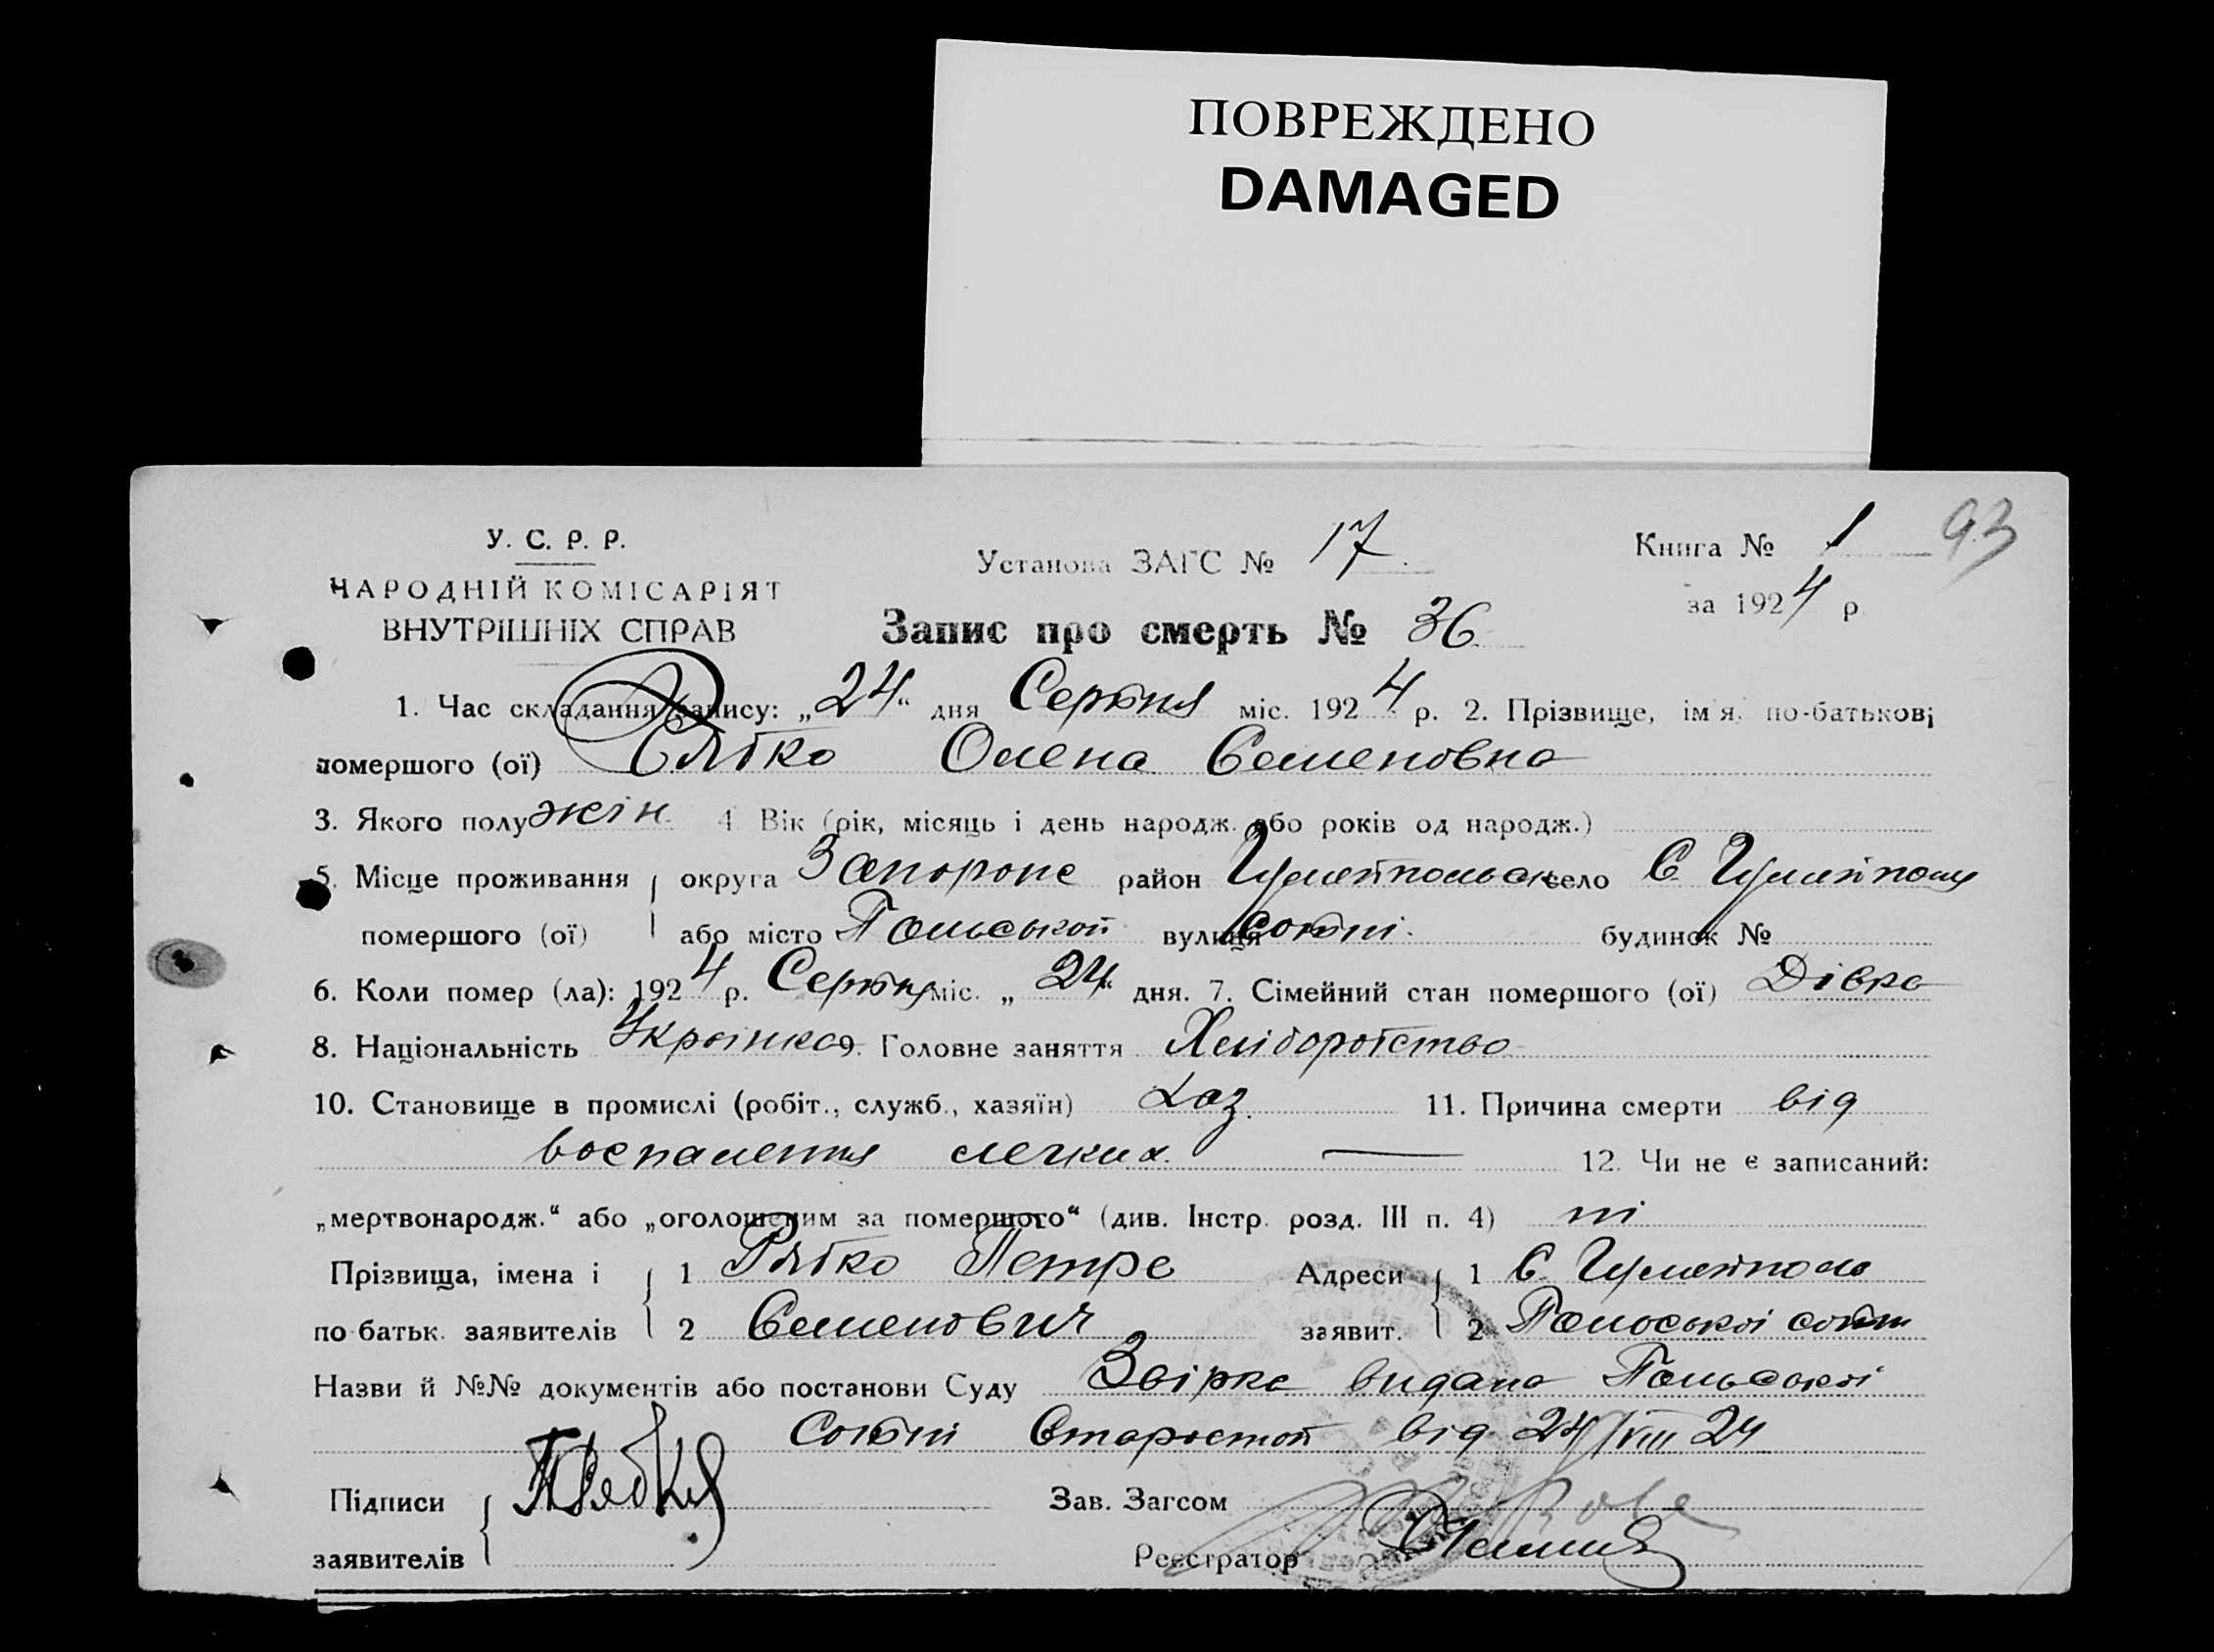 ПОВРЕЖДЕНО
DAMAGED
У. С. Р. Р.
НАРОДНІЙ КОМІСАРІЯТ
ВНУТРІШНІХ СПРАВ
Установа ЗАГС № 17
Книга № 1 93
за 1924 р.
Запис про смерть № 36
1. Час складання запису: „24“ дня Серпня міс. 1924 р. 2. Прізвище, ім'я, по-батькові
помершого (ої) Рябко Олена Семеновна
3. Якого полу жін. 4. Вік (рік, місяць і день народж. або років од народж.)
5. Місце проживання округа Запорожс район Гуляйпольск село С. Гуляйполя
помершого (ої) або місто Польской вулиця сотні. будинок №
6. Коли помер (ла): 1924 р. Серпня міс. „24“ дня. 7. Сімейний стан помершого (ої) Дівка
8. Національність Українка 9. Головне заняття Хліборобство
10. Становище в промислі (робіт., служб., хазяїн) хаз. 11. Причина смерти від
воспаления легких 12. Чи не є записаний:
„мертвонародж.“ або „оголошеним за померщого“ (див. Інстр. розд. III п. 4) ні
Прізвища, імена і 1 Рябко Петро Адреси 1 С. Гуляйполе
по батьк. заявителів 2 Семенович заявит. 2 Польської сотні
Назви й №№ документів або постанови Суду видана Польської
Сотні Старостой від 24/VIII 24
Підписи П Рябко Зав. Загсом
заявителів Реєстратор